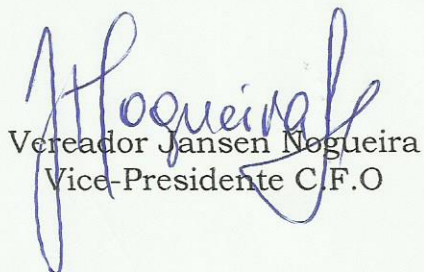 JNogueira
Vereador Jansen Nogueira
Vice-Presidente C.F.O